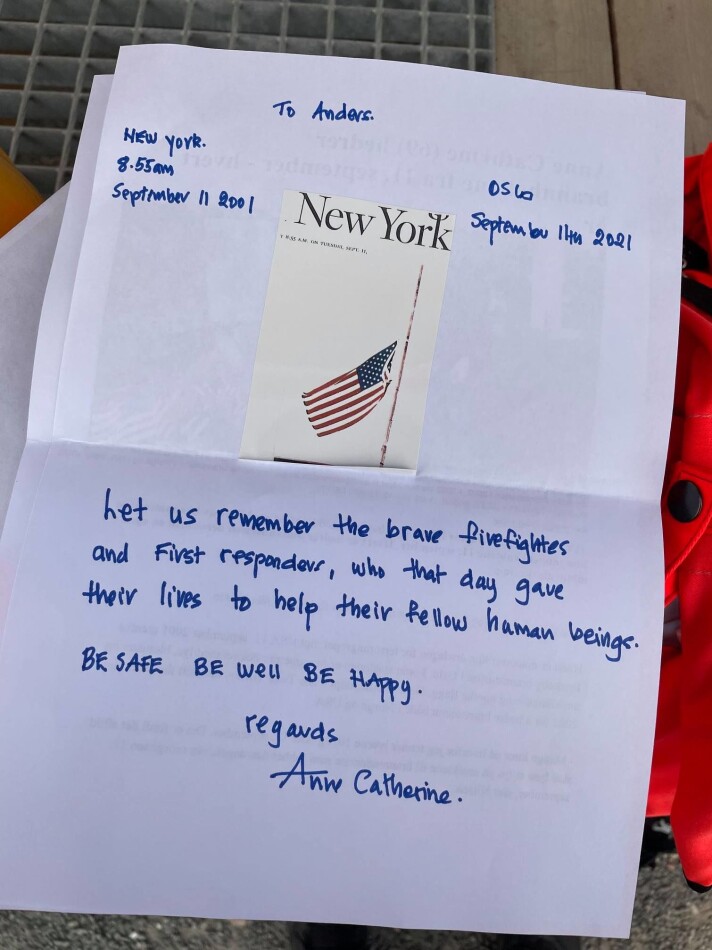 To Anders.
NEW York.
8.55am
September 11 2001
Oslo
September 11th 2021
New York
8:55 A.M. ON TUESDAY, SEPT. 11,
Let us remember the brave firefightes
and First responders, who that day gave
their lives to help their fellow human beings.
BE SAFE BE Well BE HAppy.
regards
Anne Catherine.